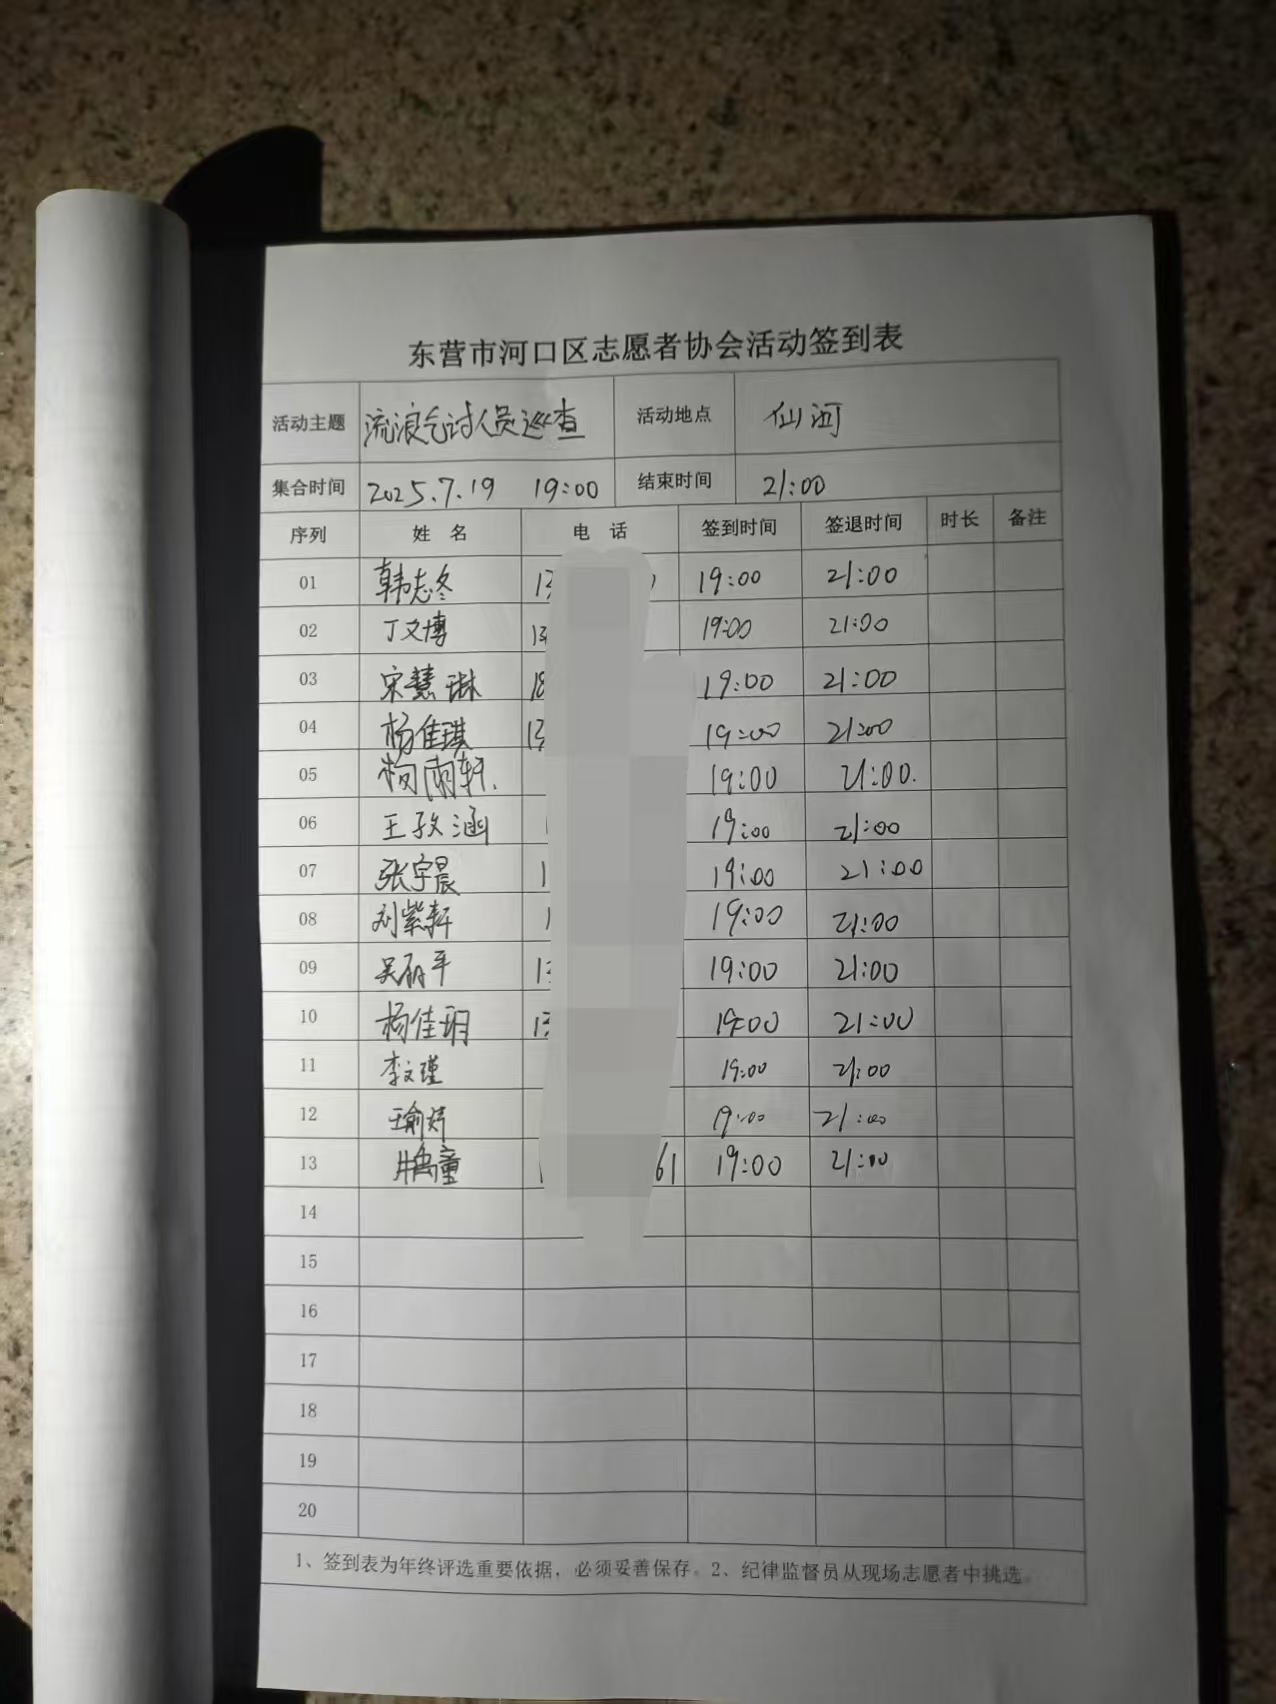 东营市河口区志愿者协会活动签到表
活动主题 流浪乞讨人员巡查 活动地点 仙河
集合时间 2025.7.19 19:00 结束时间 21:00
序列 姓 名 电 话 签到时间 签退时间 时长 备注
01 韩志冬 19:00 21:00
02 丁文博 19:00 21:00
03 宋慧琳 18 19:00 21:00
04 杨佳琪 19:00 21:00
05 雨轩 19:00 21:00.
06 王 涵 19:00 21:00
07 张宇晨 1 19:00 21:00
08 刘紫轩 1 19:00 21:00
09 吴丽平 19:00 21:00
10 杨佳玥 19:00 21:00
11 李文瑾 19:00 21:00
12 王瑜婷 19:00 21:00
13 童 61 19:00 21:00
14
15
16
17
18
19
20
1、签到表为年终评选重要依据，必须妥善保存。2、纪律监督员从现场志愿者中挑选。